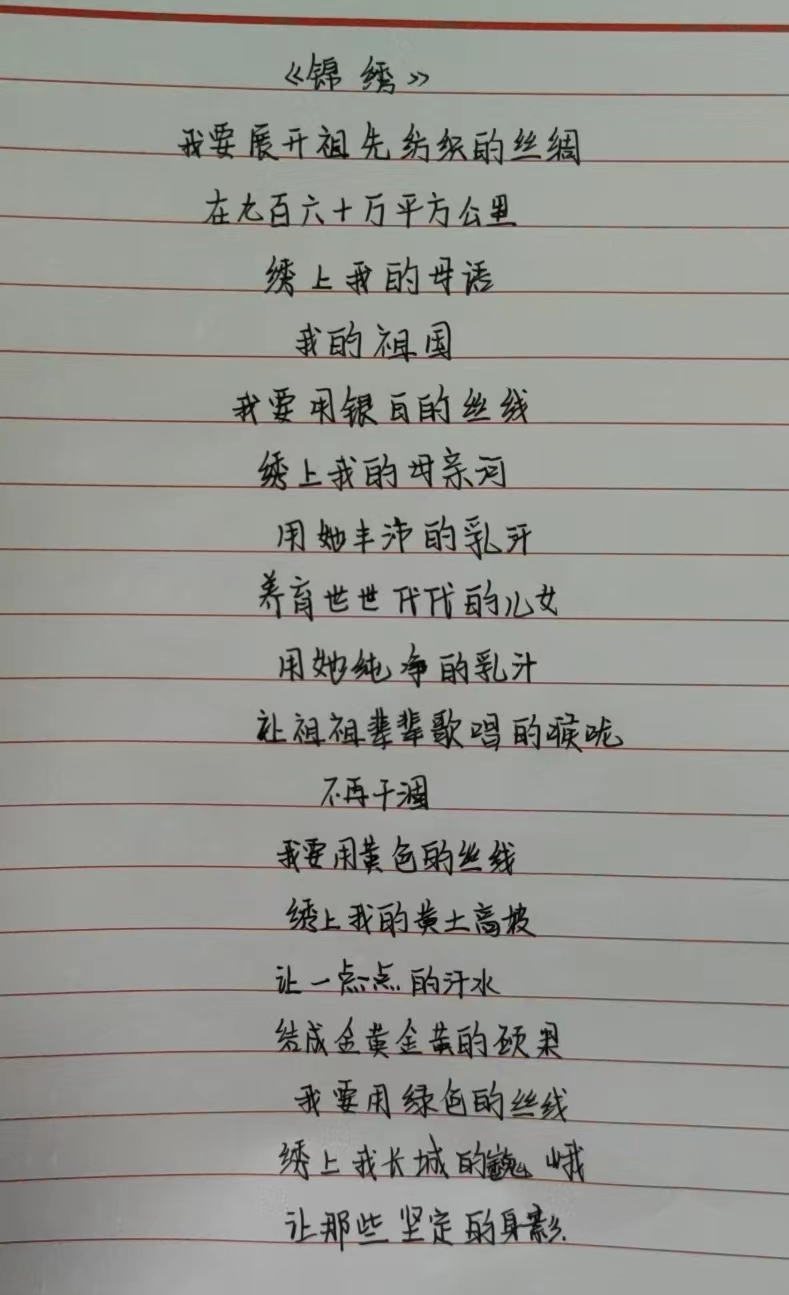 《锦绣》
我要展开祖先纺织的丝绸
在九百六十万平方公里
绣上我的母语
我的祖国
我要用银白的丝线
绣上我的母亲河
用她丰沛的乳汁
养育世世代代的儿女
用她纯净的乳汁
让祖祖辈辈歌唱的喉咙
不再干涸
我要用黄色的丝线
绣上我的黄土高坡
让一点点的汗水
结成金黄金黄的硕果
我要用绿色的丝线
绣上我长城的巍峨
让那些坚定的身影